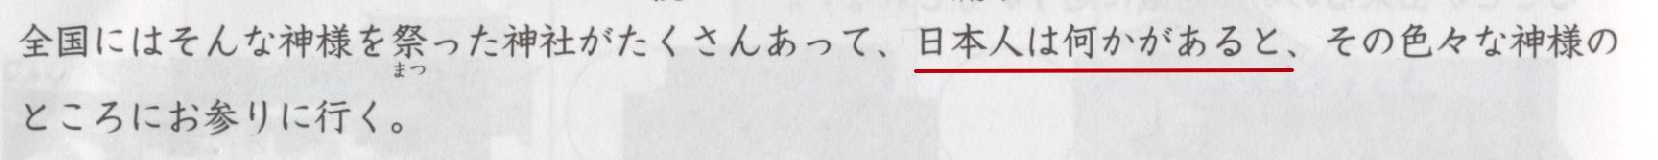 全国にはそんな神様を祭った神社がたくさんあって、日本人は何かがあると、その色々な神様の
まつ
ところにお参りに行く。